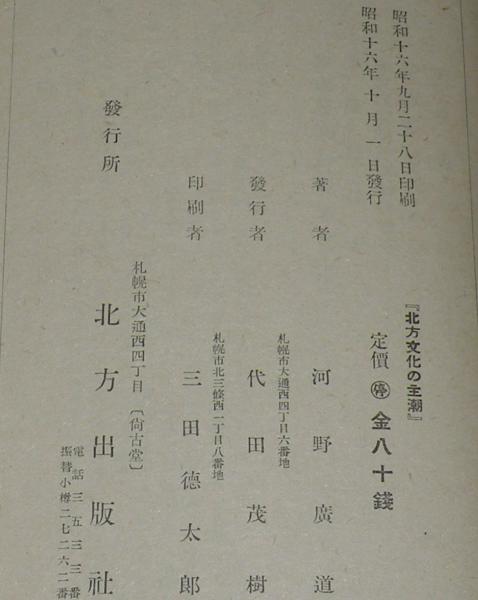 昭和十六年九月二十八日印刷
昭和十六年十月一日發行
『北方文化の主潮』
定價 ㊡ 金八十錢
著者 河野廣道
札幌市大通西四丁目六番地
發行者 代田茂樹
札幌市北三條西一丁目八番地
印刷者 三田德太郎
發行所
札幌市大通西四丁目〔尙古堂〕
北方出版社
電話三五三三番
振替小樽二七二六二番